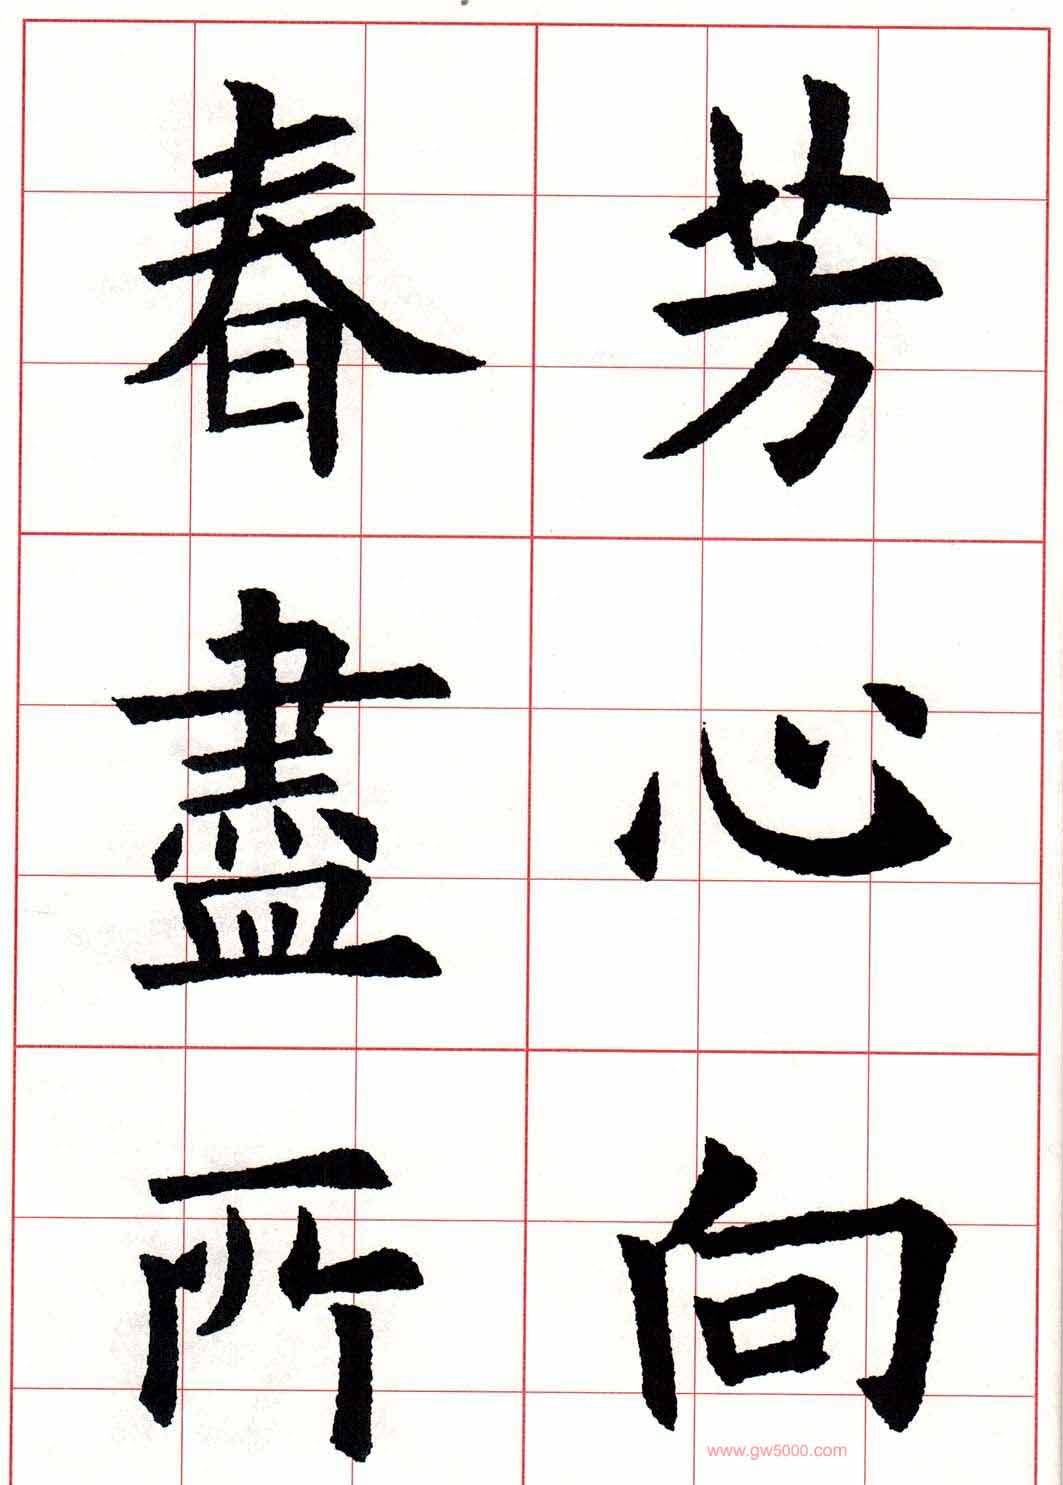 芳心向
春盡所
www.gw5000.com